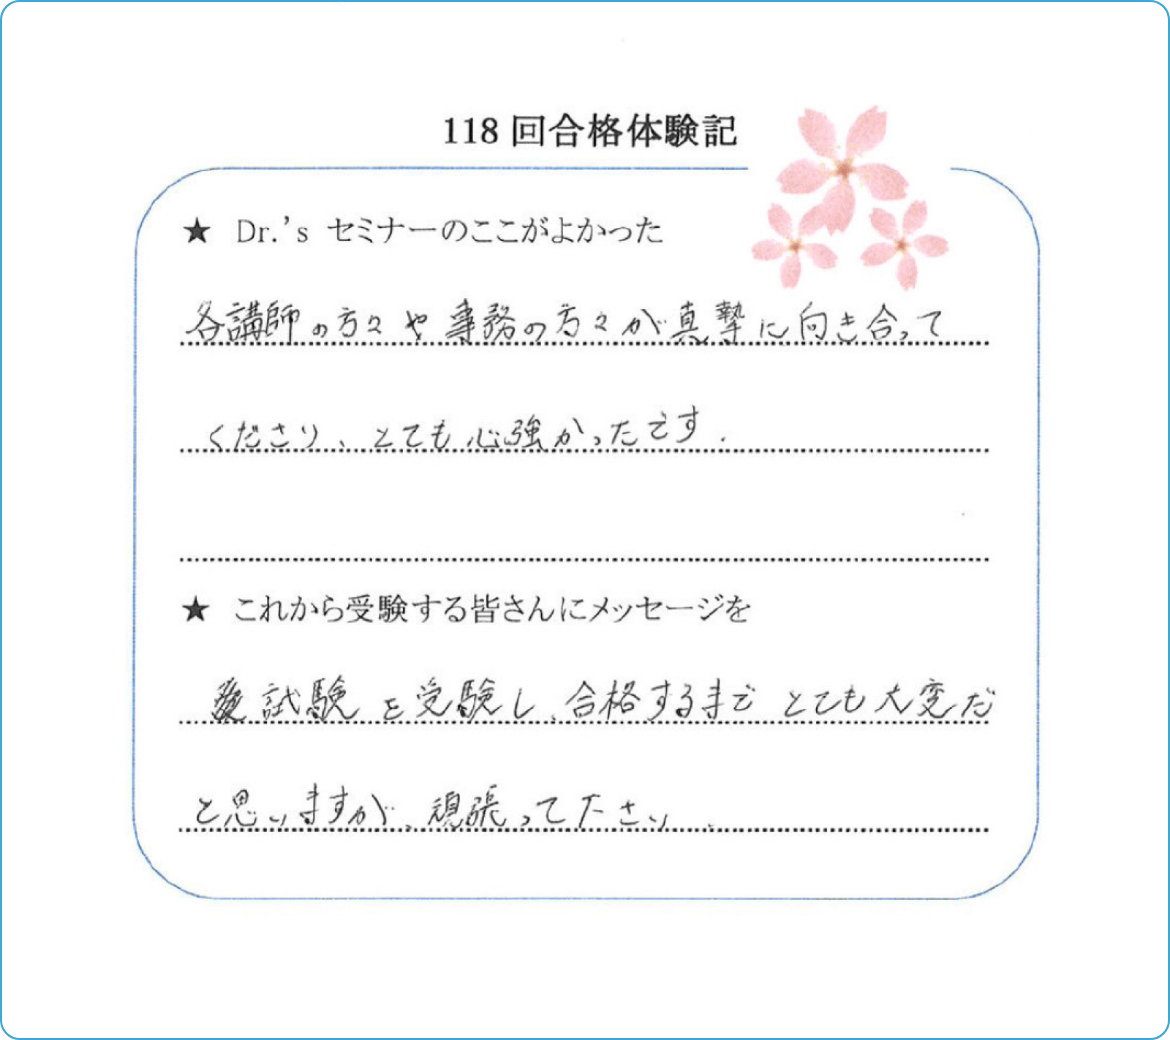 118 回合格体験記
★ Dr.’s セミナーのここがよかった
各講師の方々や事務の方々が真摯に向き合って
くださり、とても心強かったです.
★ これから受験する皆さんにメッセージを
試験を受験し、合格するまでとても大変だ
と思いますが、頑張って下さい、